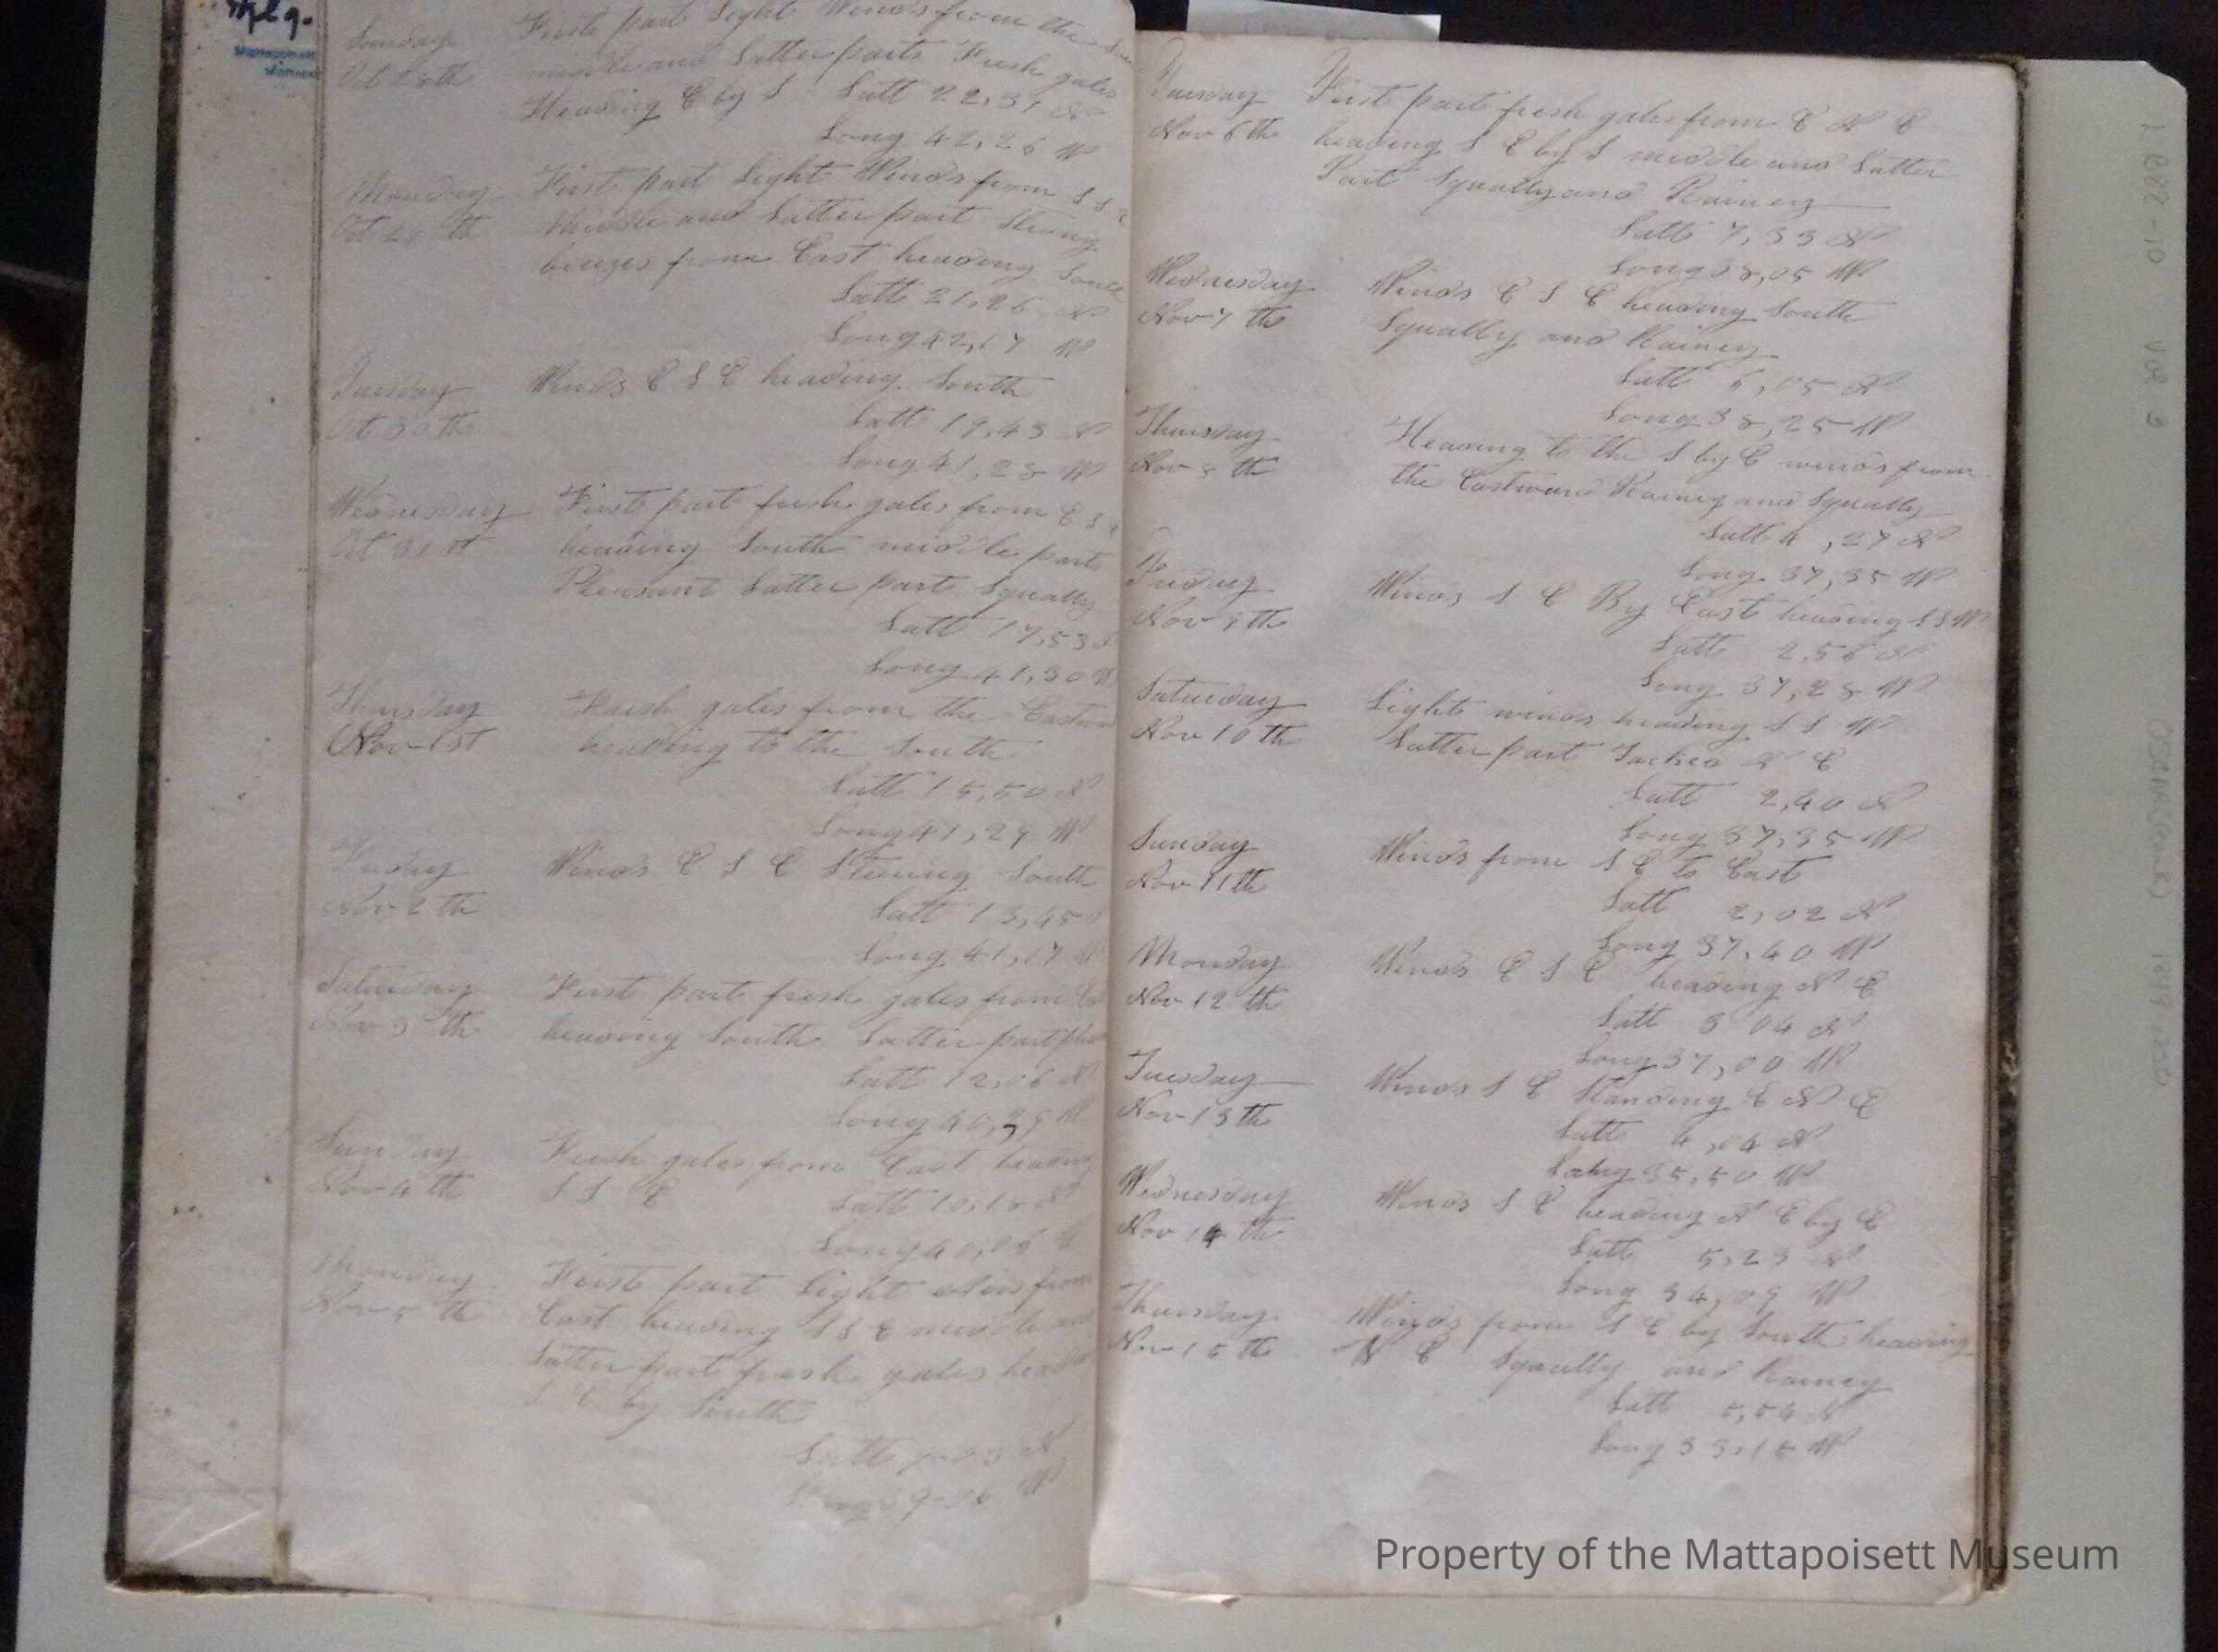 Sunday First part light Winds from the
Oct 28th middle and Latter parts Fresh gales
Heading E by S Latt 22,31 N
Long 42,26 W
Monday First part Light Winds from S S E
Oct 29 th Middle and Latter part Strong
breezes from East heading South
Latt 21,26 N
Long 42,17 W
Tuesday Winds E S E heading South
Oct 30th Latt 19,43 N
Long 41,28 W
Wednesday First part fresh gales from E S E
Oct 31 st heading South middle parts
Pleasant Latter part Squally
Latt 17,53 N
Long 41,30 W
Thursday Fresh gales from the Eastward
Nov 1st heading to the South
Latt 15,50 N
Long 41,29 W
Friday Winds E S E Steering South
Nov 2 th Latt 13,45
Long 41,17 W
Saturday First part fresh gales from
Nov 3 th heading South Latter part
Latt 12,06 N
Long 40,39 W
Sunday Fresh gales from East heading
Nov 4 th S S E Latt 10,18 N
Long 40,06 W
Monday First part light from
Nov 5 th East heading S S E middle and
Latter part fresh gales heading
S E by South
Latt 9-03 N
Long 39-06 W
Tuesday First part fresh gales from E N E
Nov 6 th heading S E by S middle and Latter
Part Squally and Rainey
Latt 7,33 N
Long 38,05 W
Wednesday Winds E S E heading South
Nov 7 th Squally and Rainey
Latt 6,05 N
Long 38,25 W
Thursday Heading to the S by E winds from
Nov 8 th the Eastward Rainey and Squally
Latt 4,27 N
Long 37,35 W
Friday Winds S E By East heading S S W
Nov 9 th Latt 2,56 N
Long 37,28 W
Saturday Light winds heading S S W
Nov 10 th Latter part Tacked N E
Latt 2,40 N
Long 37,35 W
Sunday Winds from S E to East
Nov 11th Latt 2,02 N
Long 37,40 W
Monday Winds E S E heading N E
Nov 12 th Latt 3 04 N
Long 37,00 W
Tuesday Winds S E Standing E N E
Nov 13 th Latt 4,04 N
Long 35,50 W
Wednesday Winds S E heading N E by E
Nov 14 th Latt 5,23 N
Long 34,09 W
Thursday Winds from S E by South heading
Nov 15 th N E Squally and Rainey
Latt 5,54 N
Long 33,15 W
Property of the Mattapoisett Museum